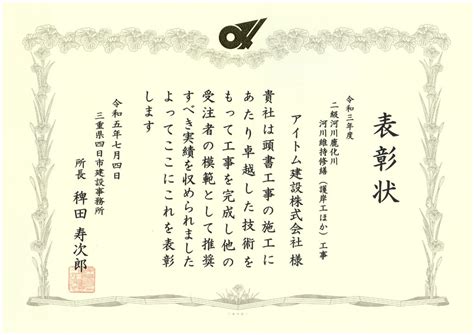 表彰状
令和三年度
二級河川鹿化川
河川維持修繕（護岸工ほか）工事
アイトム建設株式会社 様
貴社は頭書工事の施工に
あたり卓越した技術を
もって工事を完成し他の
受注者の模範として推奨
すべき実績を収められました
よってここにこれを表彰
します
令和五年七月四日
三重県四日市建設事務所
所長 稗田 寿次郎